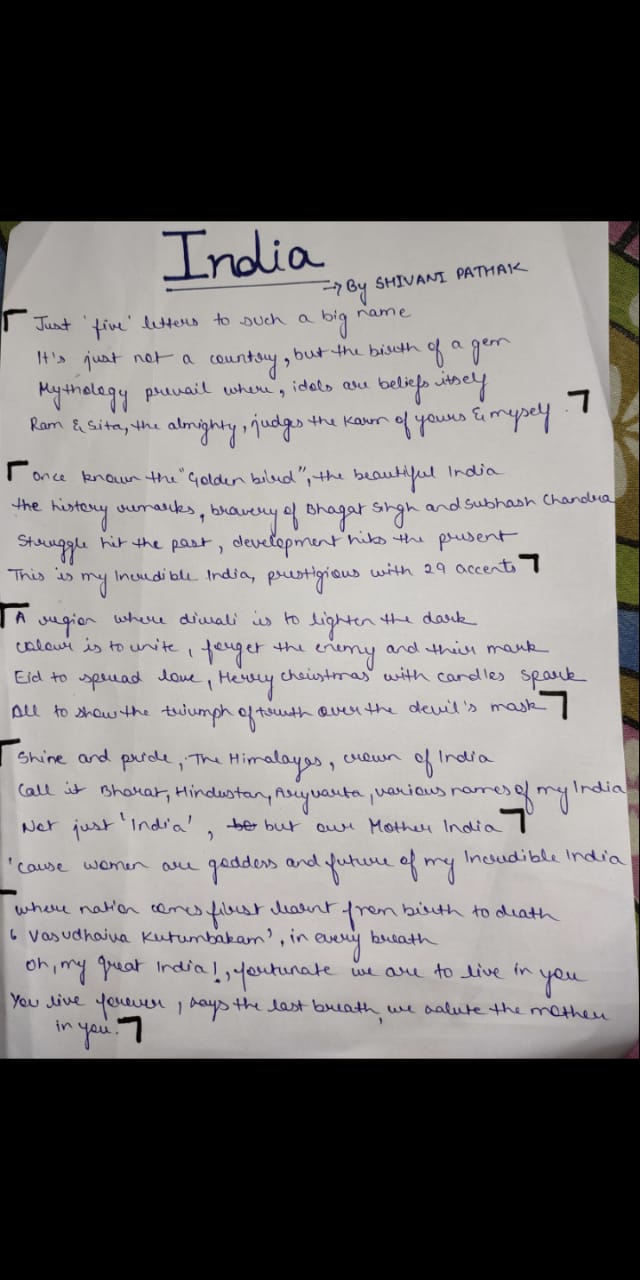 India
→ By SHIVANI PATHAK
Just 'five' letters to such a big name
It's just not a country, but the birth of a gem
Mythology prevail where, idols are beliefs itself
Ram & Sita, the almighty, judges the Karm of yours & myself.
Once known the "Golden bird", the beautiful India
the history remarks, bravery of Bhagat Singh and Subhash Chandra
Struggle hit the past, development hits the present
This is my Incredible India, prestigious with 29 accents
A region where diwali is to lighten the dark
colour is to unite, forget the enemy and their mark
Eid to spread love, Merry christmas with candles spark
All to show the triumph of truth over the devil's mask
Shine and pride, The Himalayas, crown of India
Call it Bharat, Hindustan, Aryvarta, various names of my India
Not just 'India', but our Mother India
'cause women are goddess and future of my Incredible India
where nation comes first learnt from birth to death
'Vasudhaiva Kutumbakam', in every breath
Oh, my great India!, fortunate we are to live in you
You live forever, says the last breath, we salute the mother
in you.